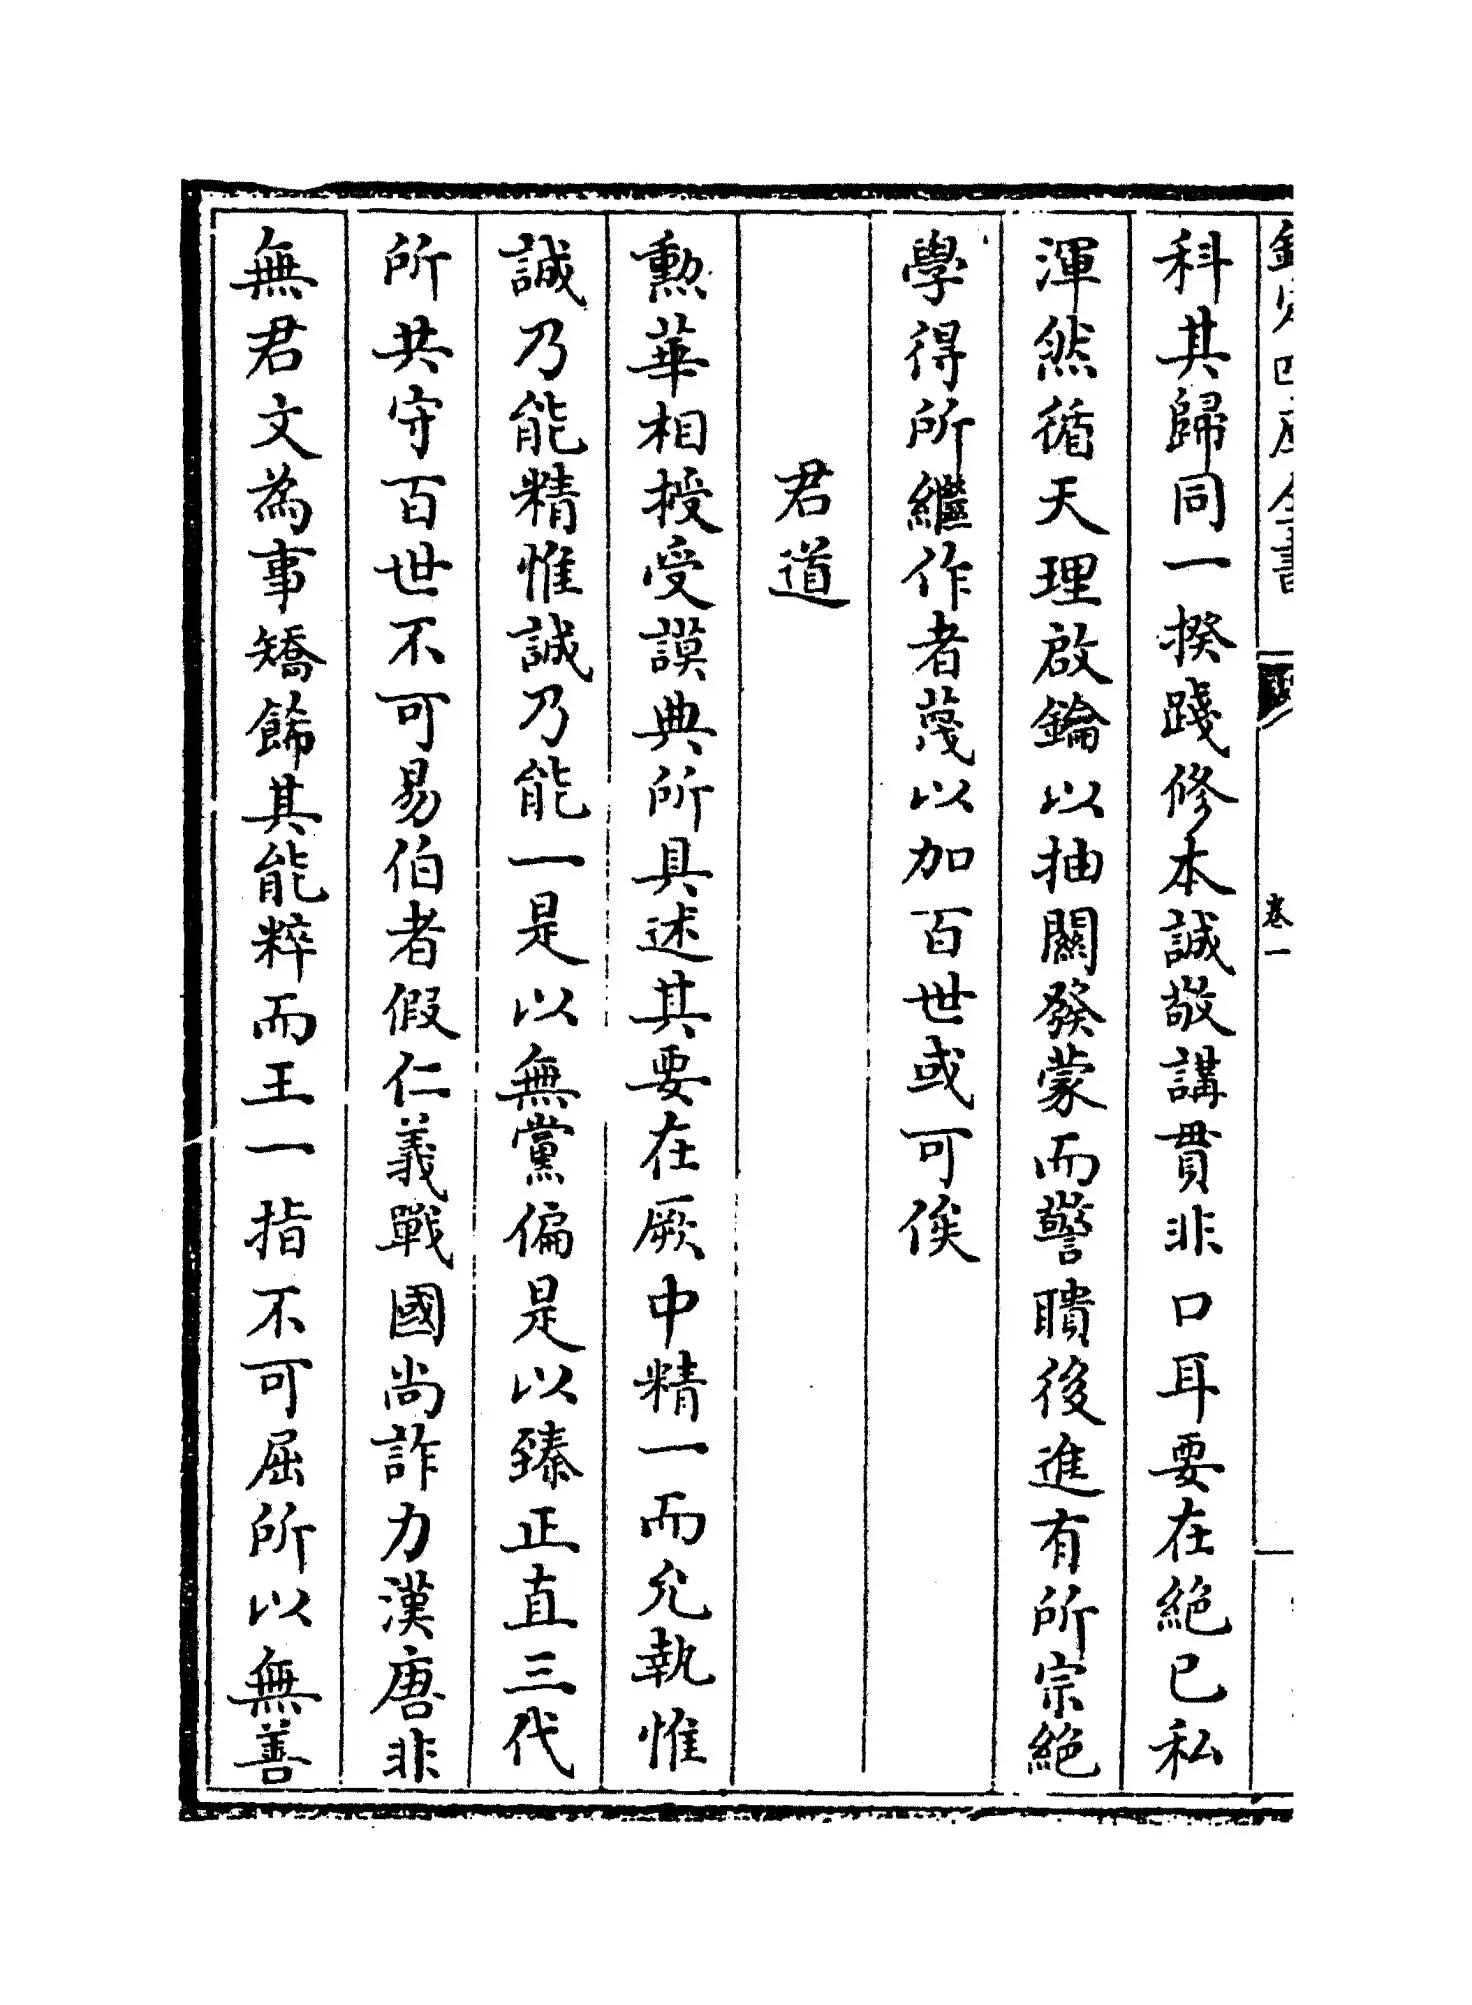 欽定四庫全書
卷一
科其歸同一揆踐修本誠敬講貫非口耳要在絕已私
渾然循天理啟鑰以抽關發蒙而警聵後進有所宗絕
學得所繼作者蔑以加百世或可俟
君道
勲華相授受謨典所具述其要在厥中精一而允執惟
誠乃能精惟誠乃能一是以無黨偏是以臻正直三代
所共守百世不可易伯者假仁義戰國尚詐力漢唐非
無君文為事矯飾其能粹而王一指不可屈所以無善